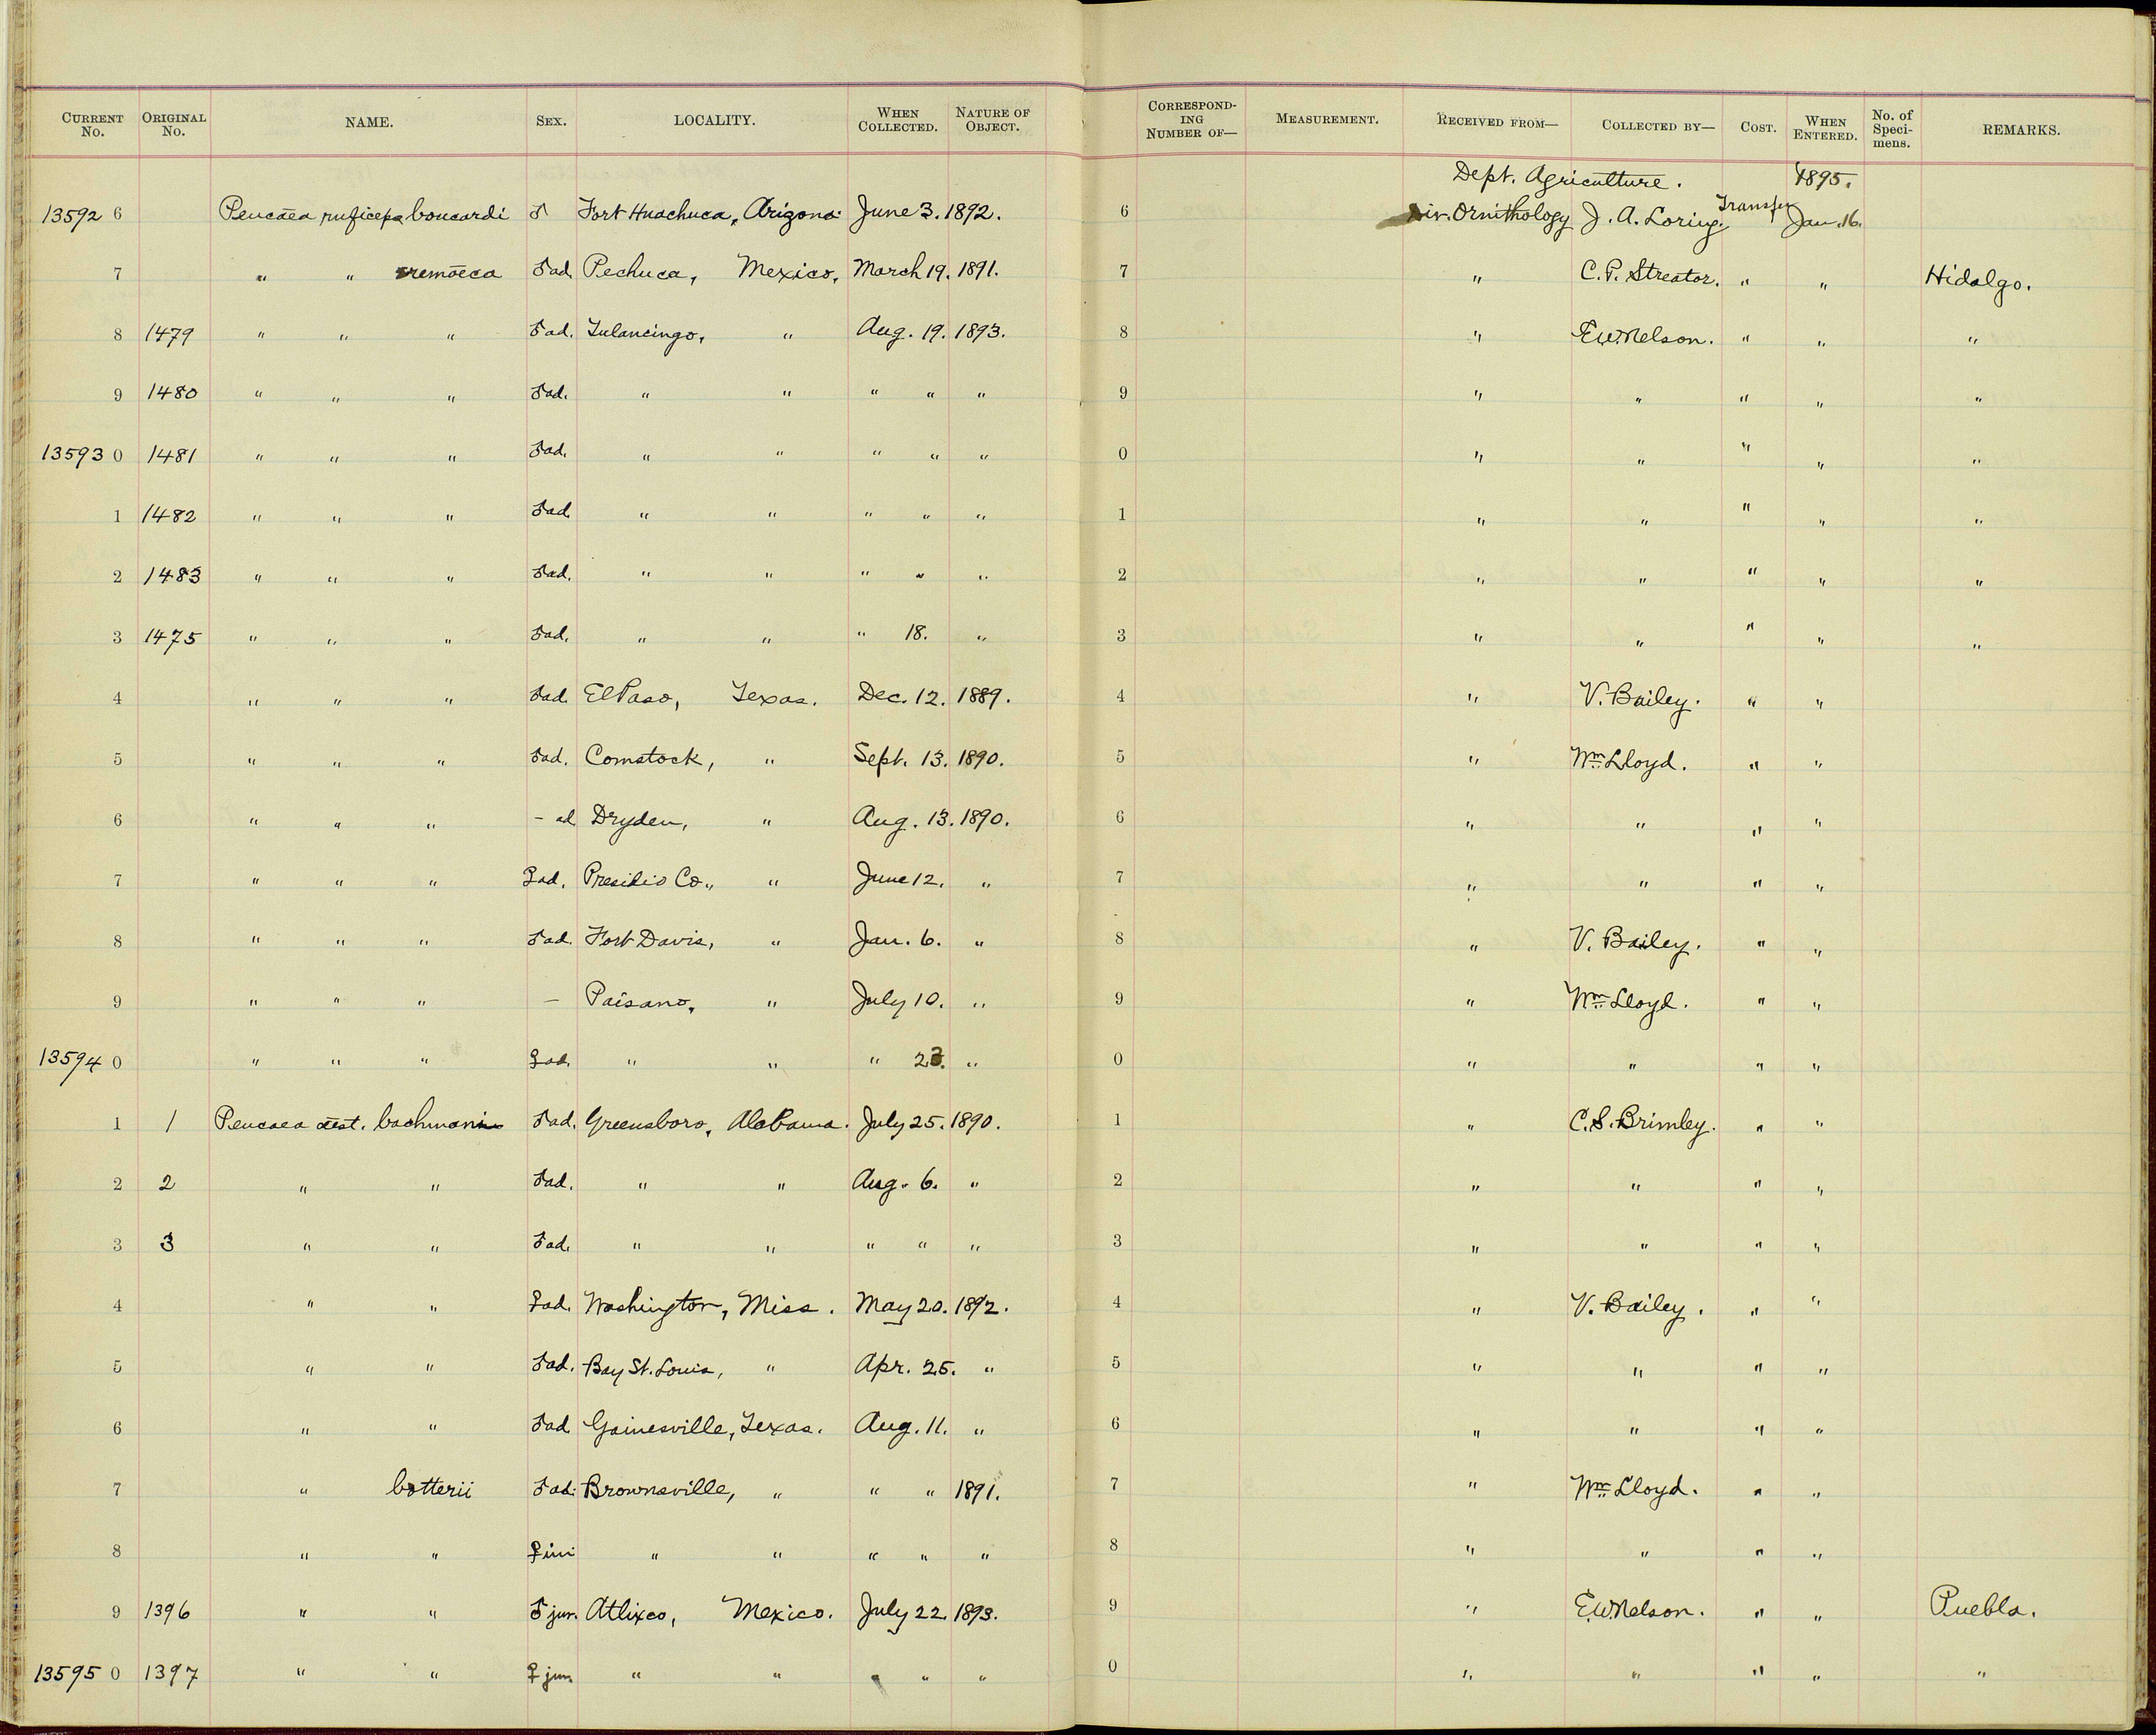 CURRENT No. ORIGINAL No. NAME. SEX. LOCALITY. WHEN COLLECTED. NATURE OF OBJECT. CORRESPONDING NUMBER OF— MEASUREMENT. RECEIVED FROM— COLLECTED BY— COST. WHEN ENTERED. No. of Specimens. REMARKS.
Dept. Agriculture. 1895.
13592 6 Peucaea ruficeps boucardi ♂ Fort Huachuca, Arizona. June 3. 1892. 6 Div. Ornithology J. A. Loring. Transfer Jan. 16.
7 " " eremoeca ♂ad. Pechuca, Mexico, March 19. 1891. 7 " C. P. Streator. " " Hidalgo.
8 1479 " " " ♂ad. Tulancingo, " Aug. 19. 1893. 8 " E.W. Nelson. " " "
9 1480 " " " ♂ad. " " " " " 9 " " " " "
13593 0 1481 " " " ♂ad. " " " " " 0 " " " " "
1 1482 " " " ♂ad. " " " " " 1 " " " " "
2 1483 " " " ♂ad. " " " " " 2 " " " " "
3 1475 " " " ♂ad. " " " 18. " 3 " " " " "
4 " " " ♂ad. El Paso, Texas. Dec. 12. 1889. 4 " V. Bailey. " "
5 " " " ♂ad. Comstock, " Sept. 13. 1890. 5 " Wm Lloyd. " "
6 " " " – ad Dryden, " Aug. 13. 1890. 6 " " " "
7 " " " ♀ad. Presidio Co., " June 12. " 7 " " " "
8 " " " ♂ad. Fort Davis, " Jan. 6. " 8 " V. Bailey. " "
9 " " " – Paisano, " July 10. " 9 " Wm Lloyd. " "
13594 0 " " " ♀ad. " " " 23. " 0 " " " "
1 1 Peucaea aest. bachmani ♂ad. Greensboro, Alabama. July 25. 1890. 1 " C. S. Brimley. " "
2 2 " " ♂ad. " " Aug. 6. " 2 " " " "
3 3 " " ♂ad. " " " " " 3 " " " "
4 " " ♀ad. Washington, Miss. May 20. 1892. 4 " V. Bailey. " "
5 " " ♂ad. Bay St. Louis, " Apr. 25. " 5 " " " "
6 " " ♂ad Gainesville, Texas. Aug. 11. " 6 " " " "
7 " botterii ♂ad. Brownsville, " " " 1891. 7 " Wm Lloyd. " "
8 " " ♀ " " " " " 8 " " " "
9 1396 " " ♂ juv. Atlixco, Mexico. July 22. 1893. 9 " E.W. Nelson. " " Puebla.
13595 0 1397 " " ♀ juv. " " " " " 0 " " " " "